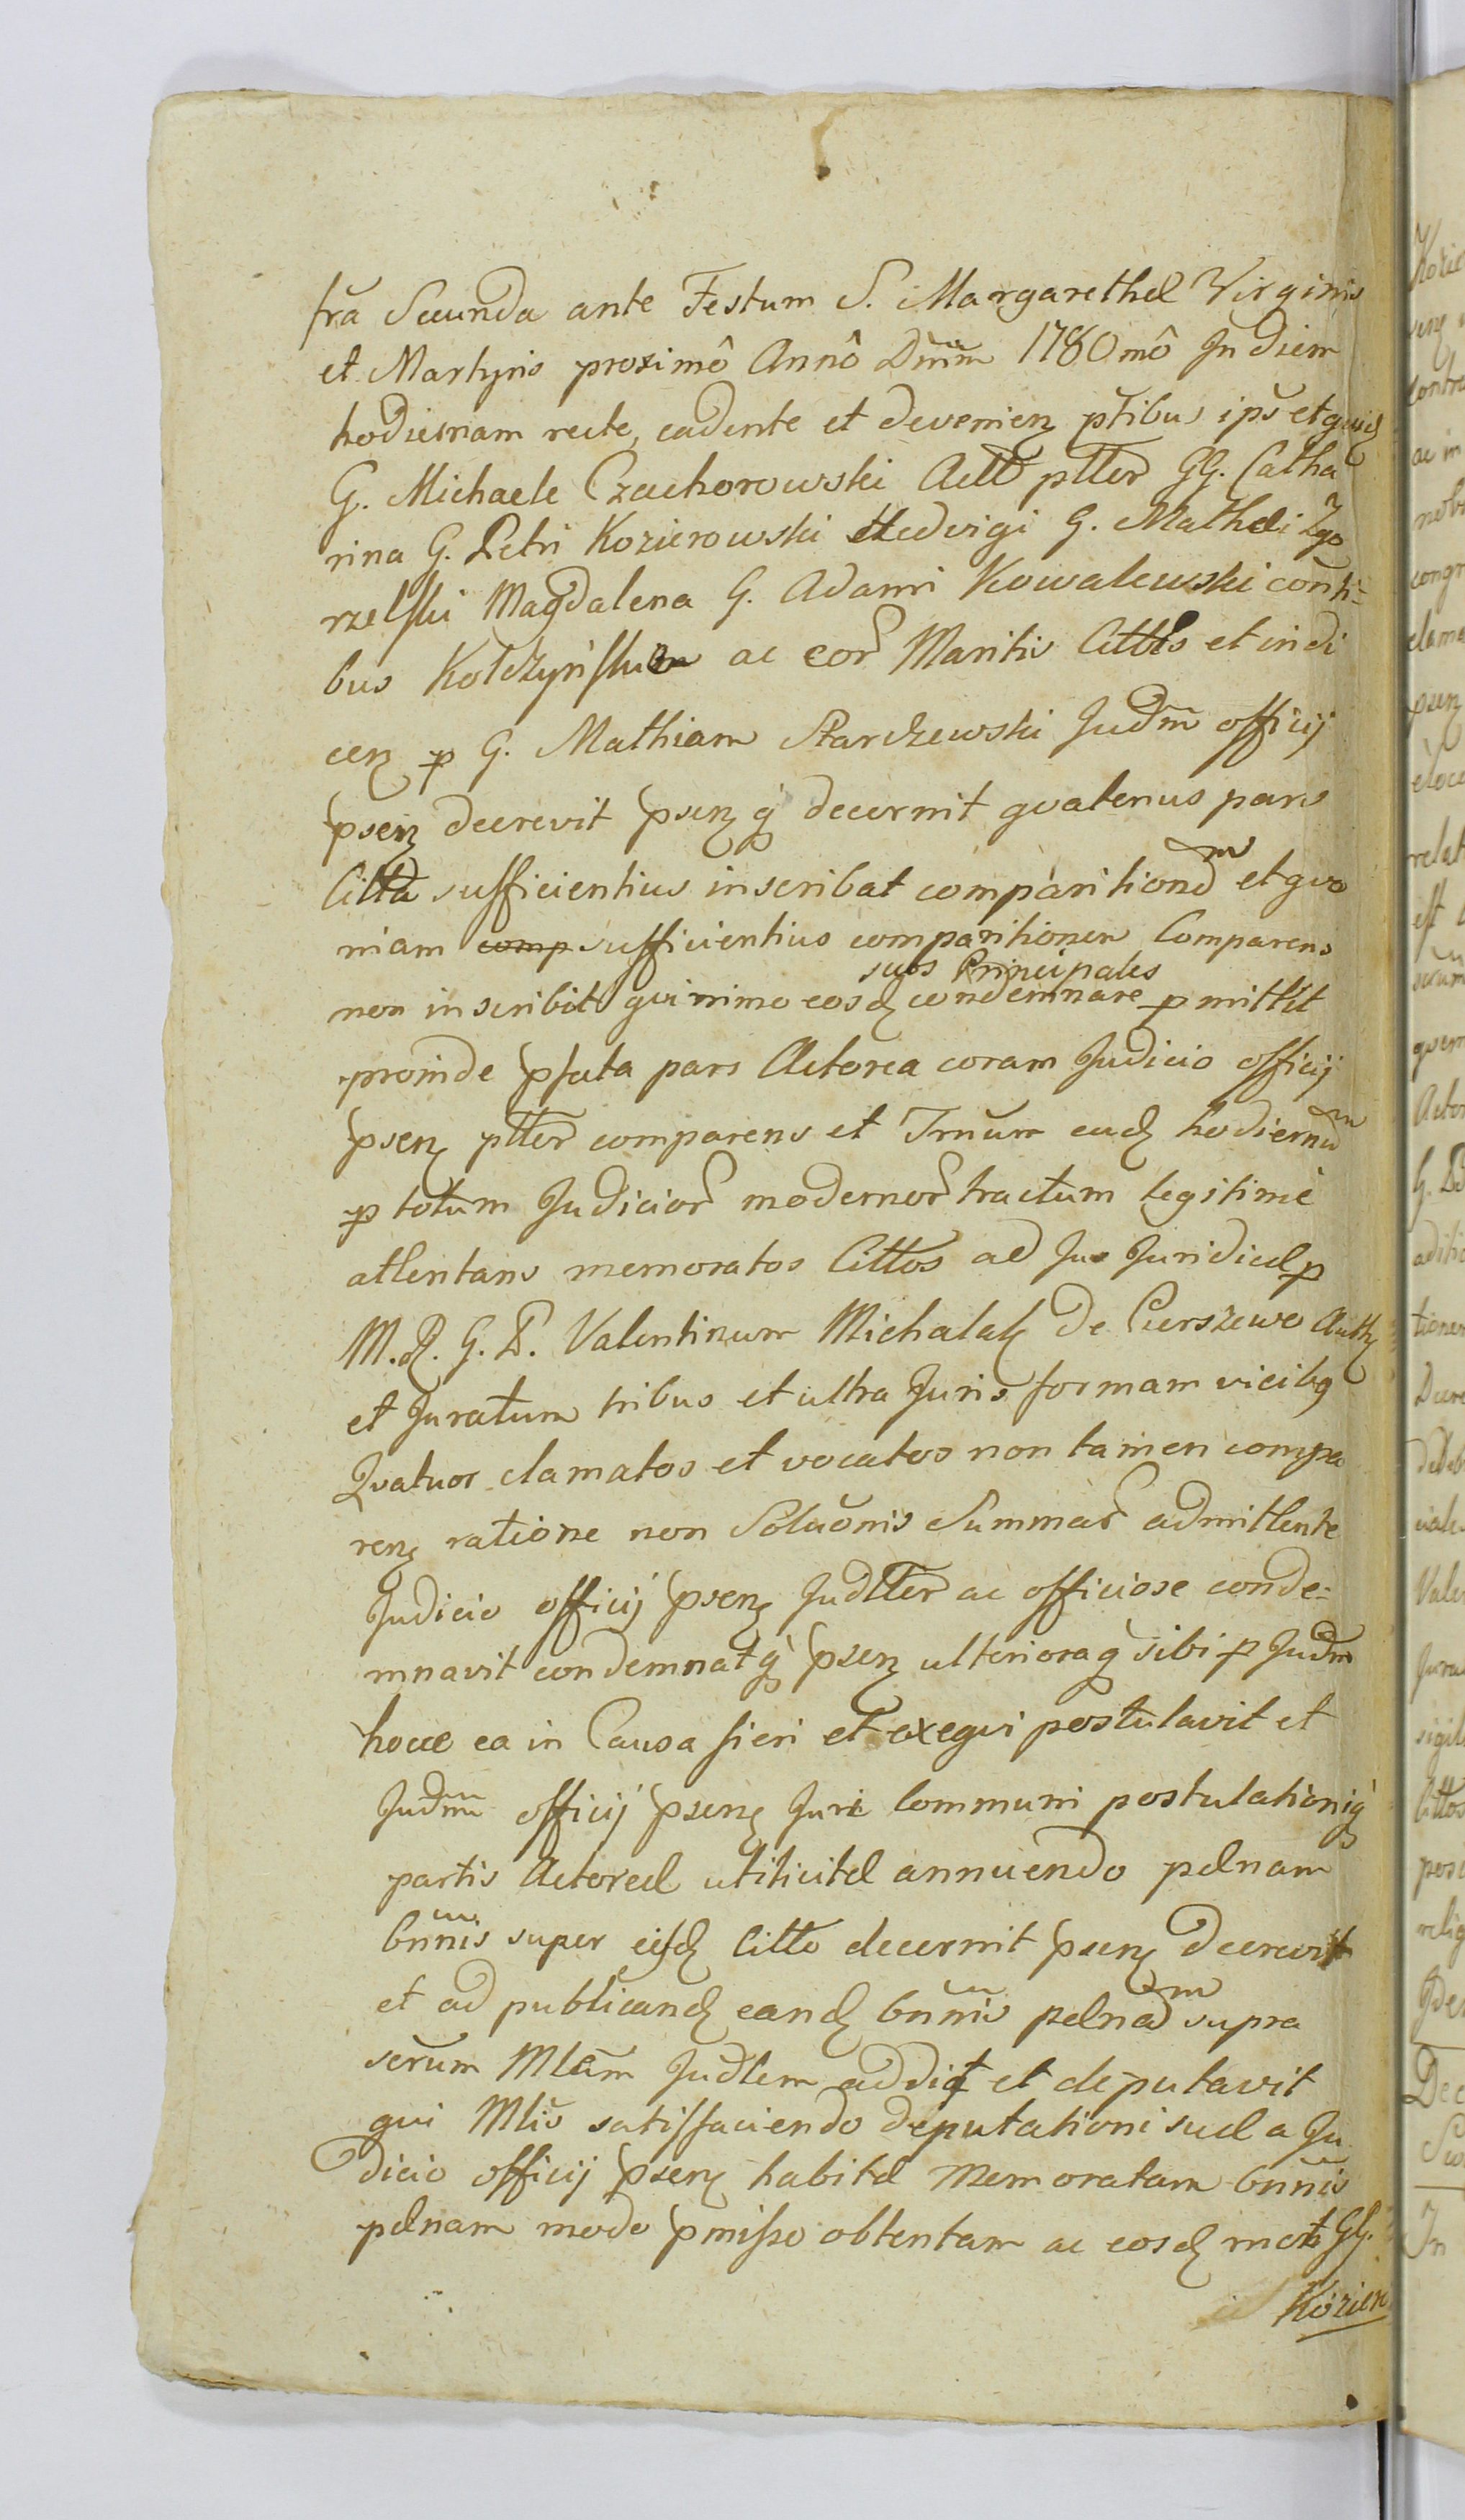 fra Secunda ante Festum S. Margarethæ Virginis
et Martyris proximô Annô Dnim 1780mô In diem
hodiernam recte cadente et devenienꝫ ptibus ips et
G. Michaele Czachorowski Acto ptter GG. Catha
rina G. Petri Kozierowski Hedvigi G. Mathæi Zgo
rzelski Magdalena G. Adami Kowalewski conti=
bus Kołdzyńskie ac eor Maritis Citt̃is et in di
cenꝫ p G. Mathiam Starczewski Judm officij
psenꝫ decrevit psenꝫ q̃ decernit qvatenus pars
Citta sufficientius inscribat comparitionem et qvo
niam comp sufficientius comparitionem Comparens
suos Principales
non inscribit qvinimo eosđ condemnare pmittit
proinde pfata pars Actorea coram Judicio officij
psenꝫ ptter comparens et Trnum euđ hodiernum
p totum Judicior modernor tractum legitimè
attentans memoratos Cittos ad Jus Juridice p
M. R. G. D. Valentinum Michalak de Cierszewo Auth
et Juratum tribus et ultra Juris formam vicibq
Qvatuor clamatos et vocatos non tamen compa
renꝫ ratione non Soluonis Summar admittente
Judicio officij psenꝫ Judtter ac officiose conde=
mnavit condemnatq̃ psenꝫ ulterioraq̃ sibi p Judm
hocce ea in Causa fieri et exeqvi postulavit et
Judm officij psenꝫ Juri Communi postulationiq̃
partis Actoreæ utilicitæ annuendo pænam
bnnis super eisđ Citto decernit psenꝫ decrevit
et ad publicanđ eanđ bnnis pænam supra
serum Mlem Judlem addit et deputavit
qui Mlis satisfaciendo deputationi suæ a Ju
dicio officij psenꝫ habitæ memoratam bnnis
pænam modo pmisso obtentam ac eosđ mcti GG.
Kozier